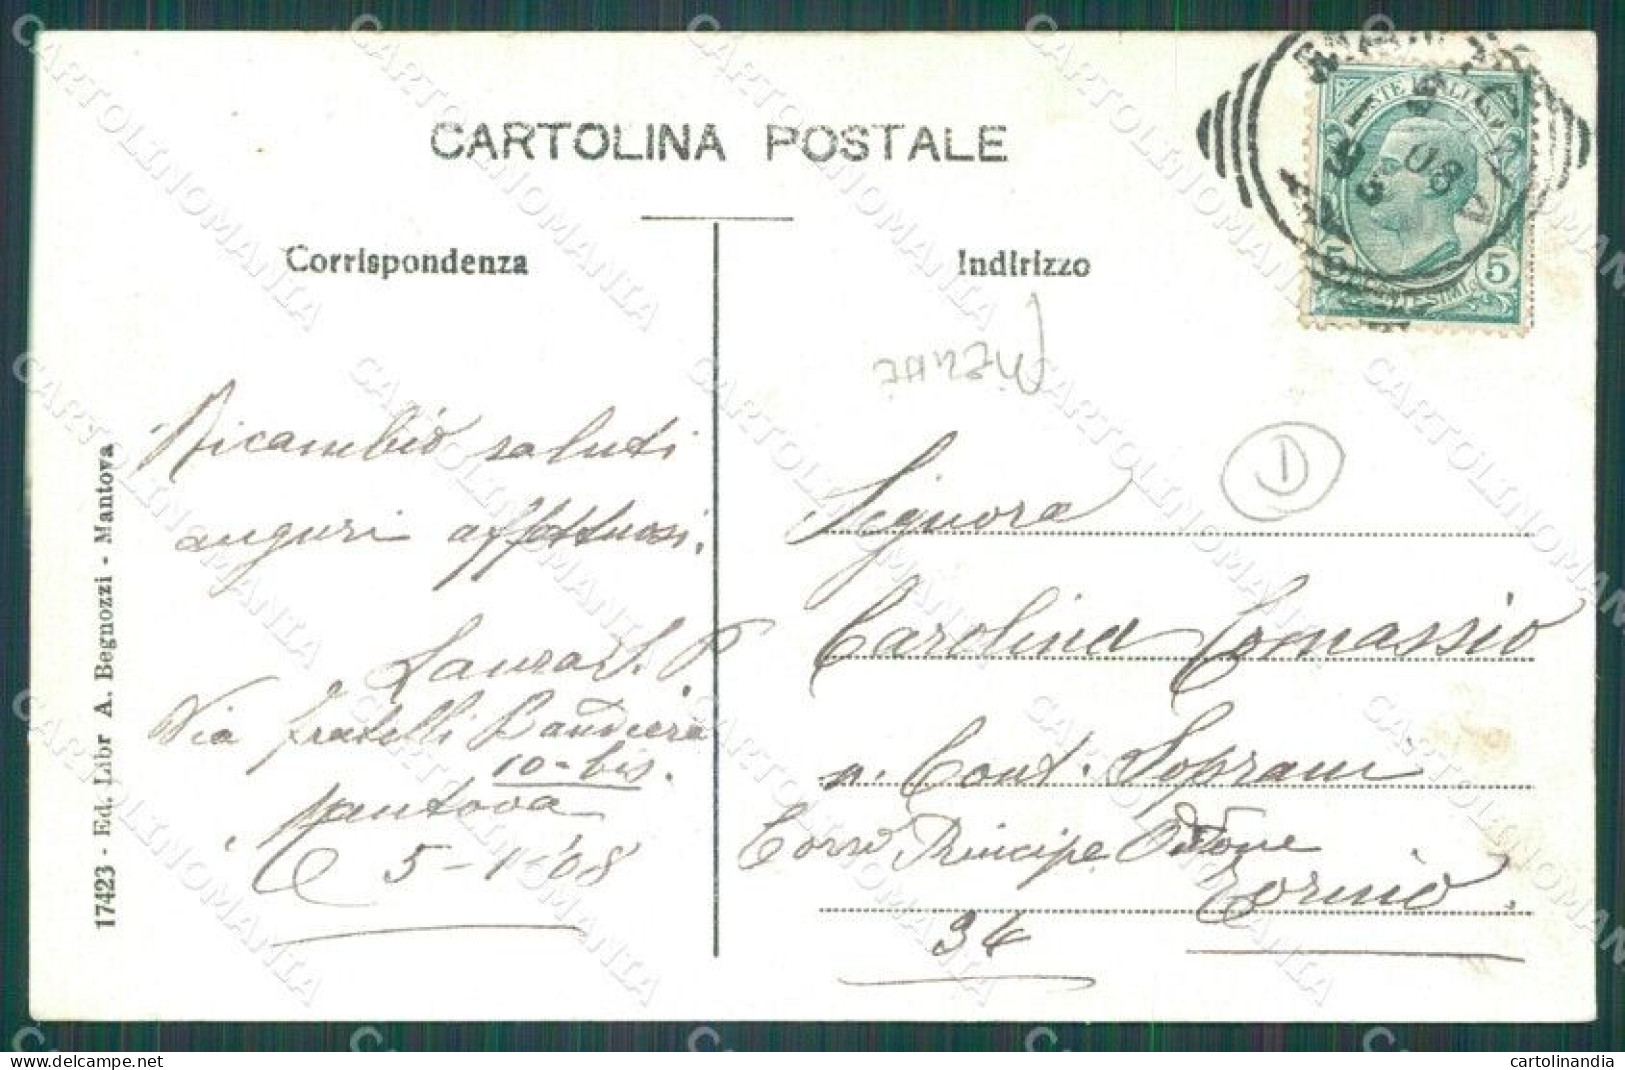 CARTOLINA POSTALE
Corrispondenza
Indirizzo
Ricambio saluti
auguri affettuosi.
Laura S. P.
Via fratelli Bandiera
10-bis.
Mantova
5-1-'08
D
Signora
Carolina Comassio
n. Cont. Soprani
Corso Principe Oddone
Torino
34
17423 - Ed. Libr A. Begnozzi - Mantova
08
5 5
CARTOLINOMANIA
cartolinandia